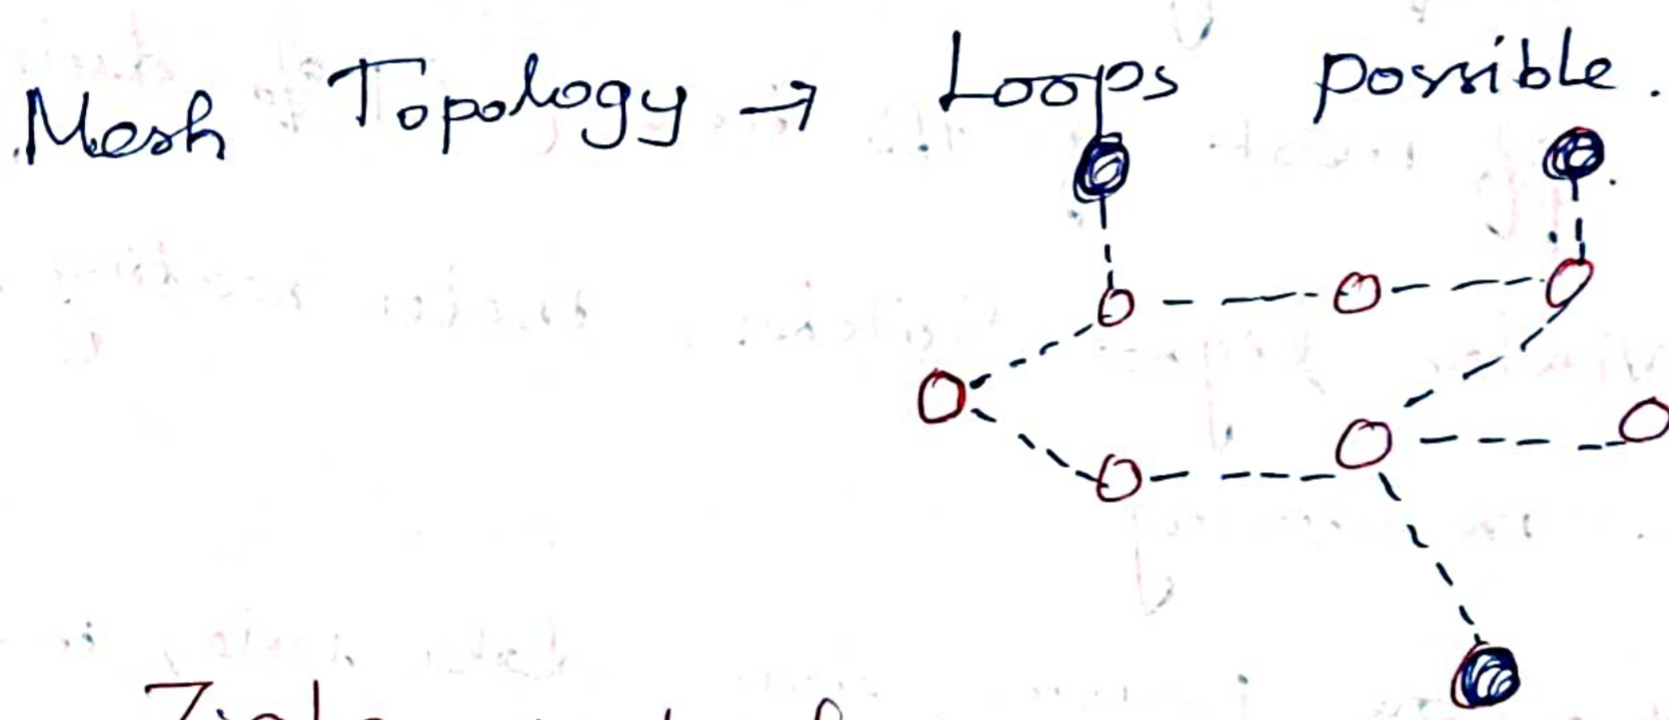 Mesh Topology → Loops possible.